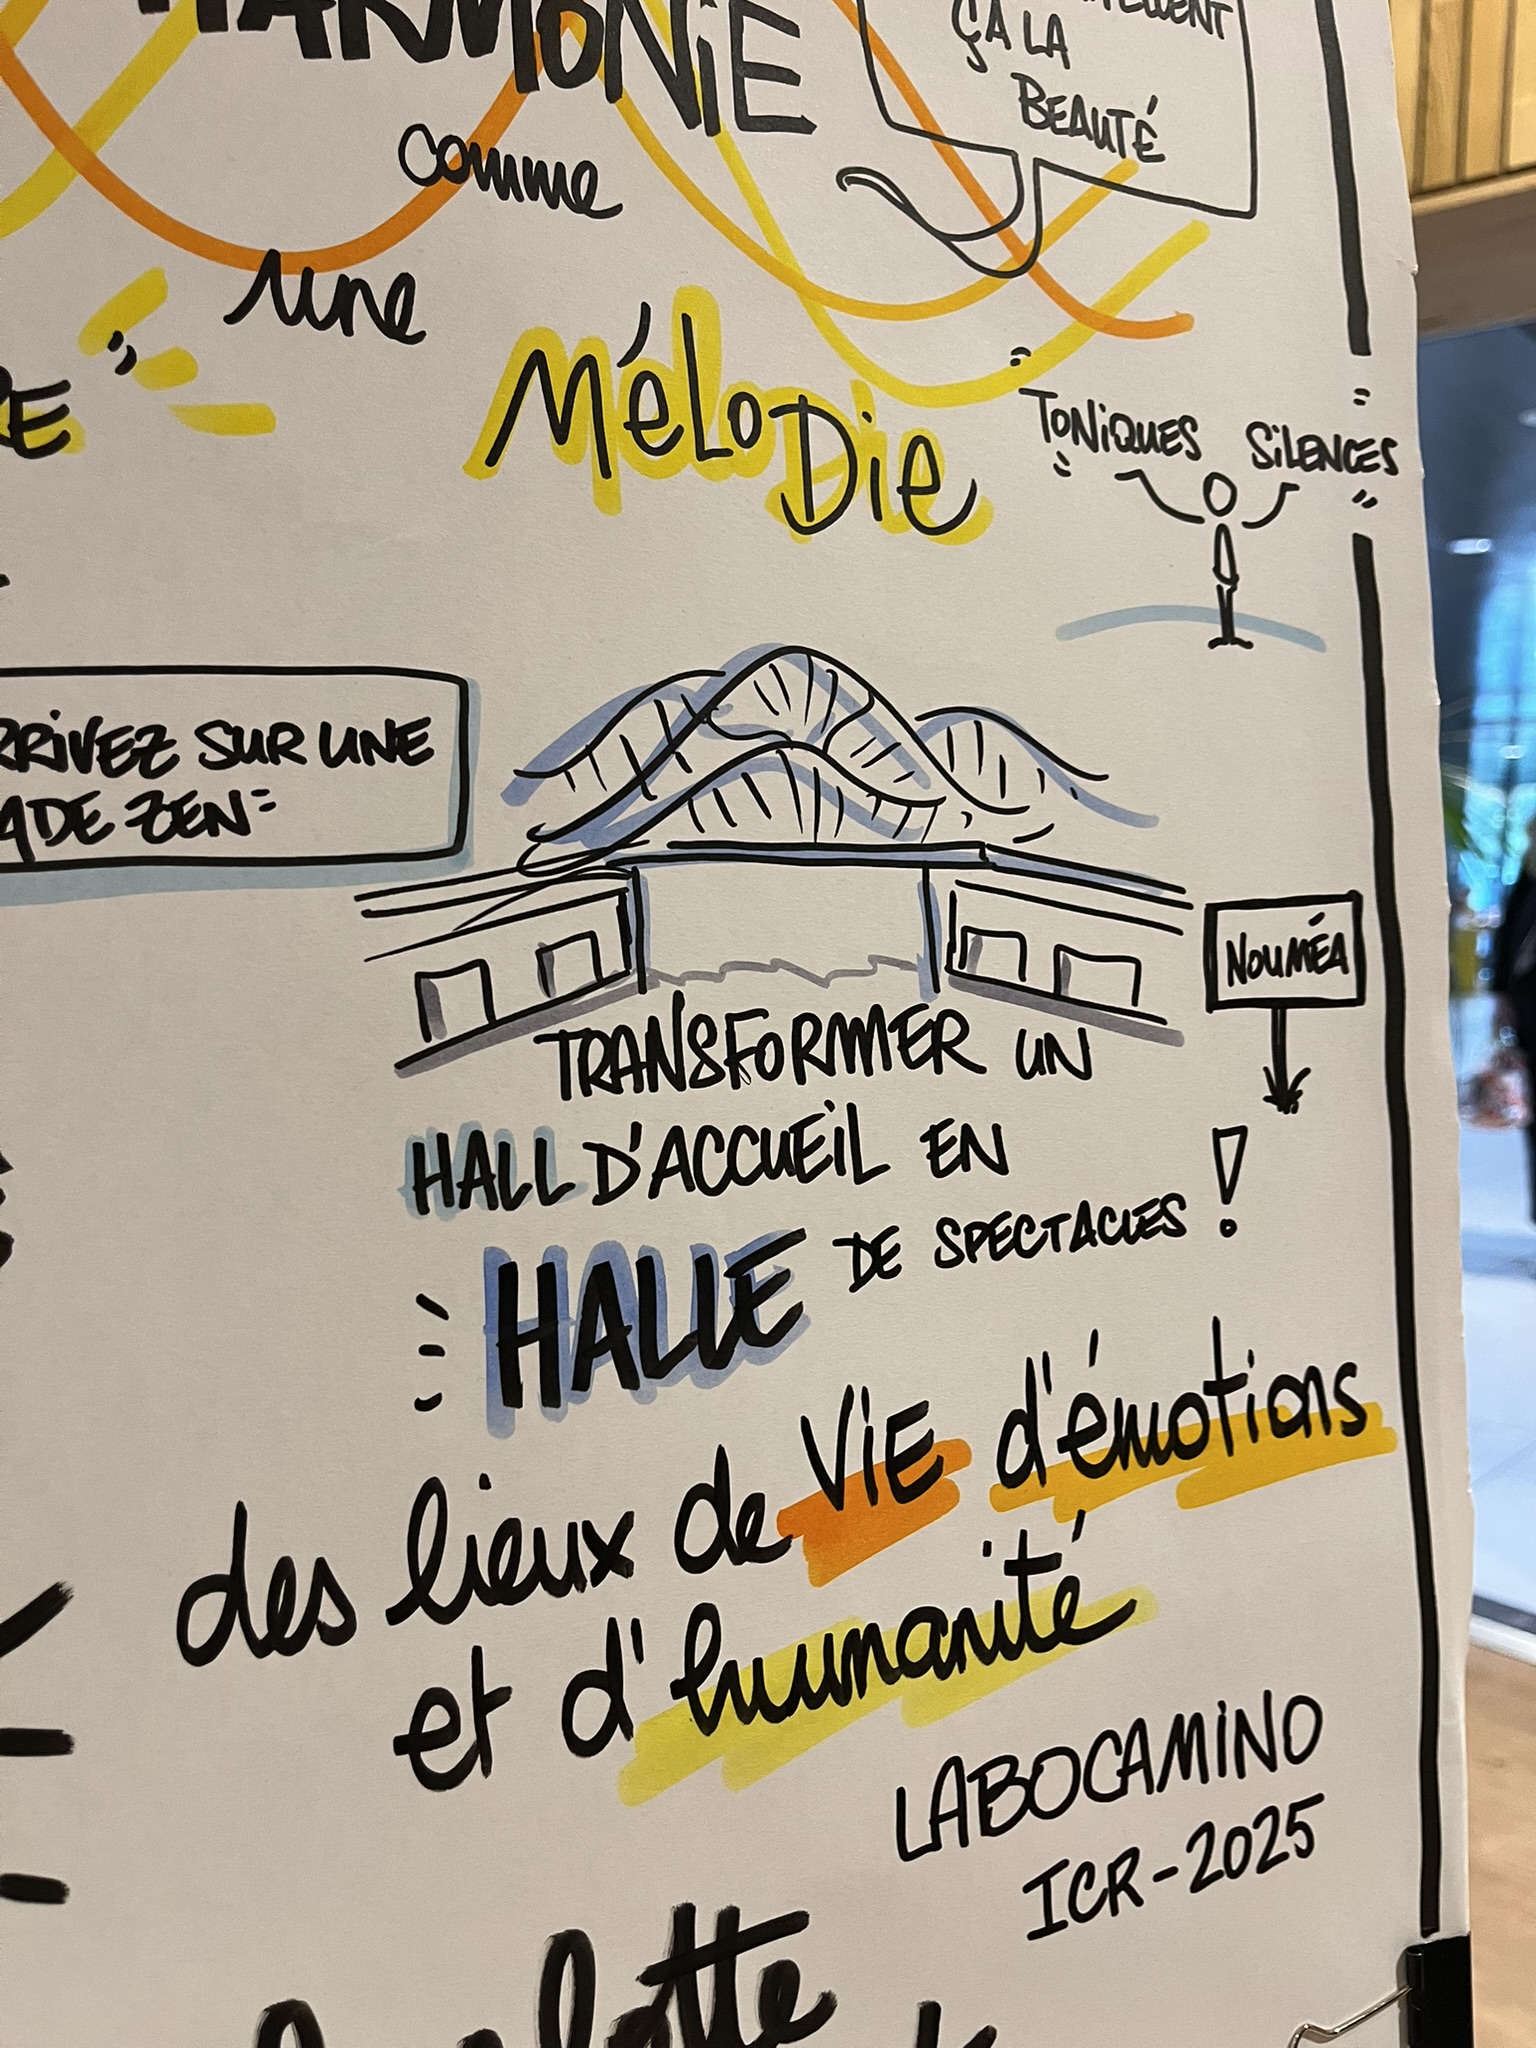 HARMONiE
ÇA LA
BEAUTÉ
comme
une
MéloDie
TONiQUES SiLENCES
SUR UNE
ZEN
NOUMÉA
TRANSFORMER UN
HALL D'ACCUEiL EN
HALLE DE SPECTACLES !
des lieux de ViE d'émotions
et d'humanité
LABOCAMiNO
ICR-2025